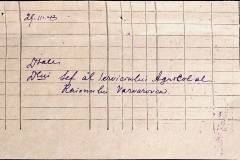 29.III.943
D-sale
D-lui Șef al Serviciului Agricol al
Raionului Varvarovca